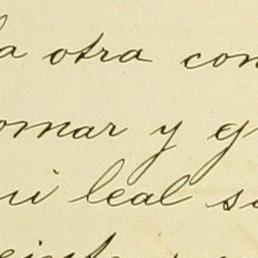 la otra con
omar y g
mi leal s